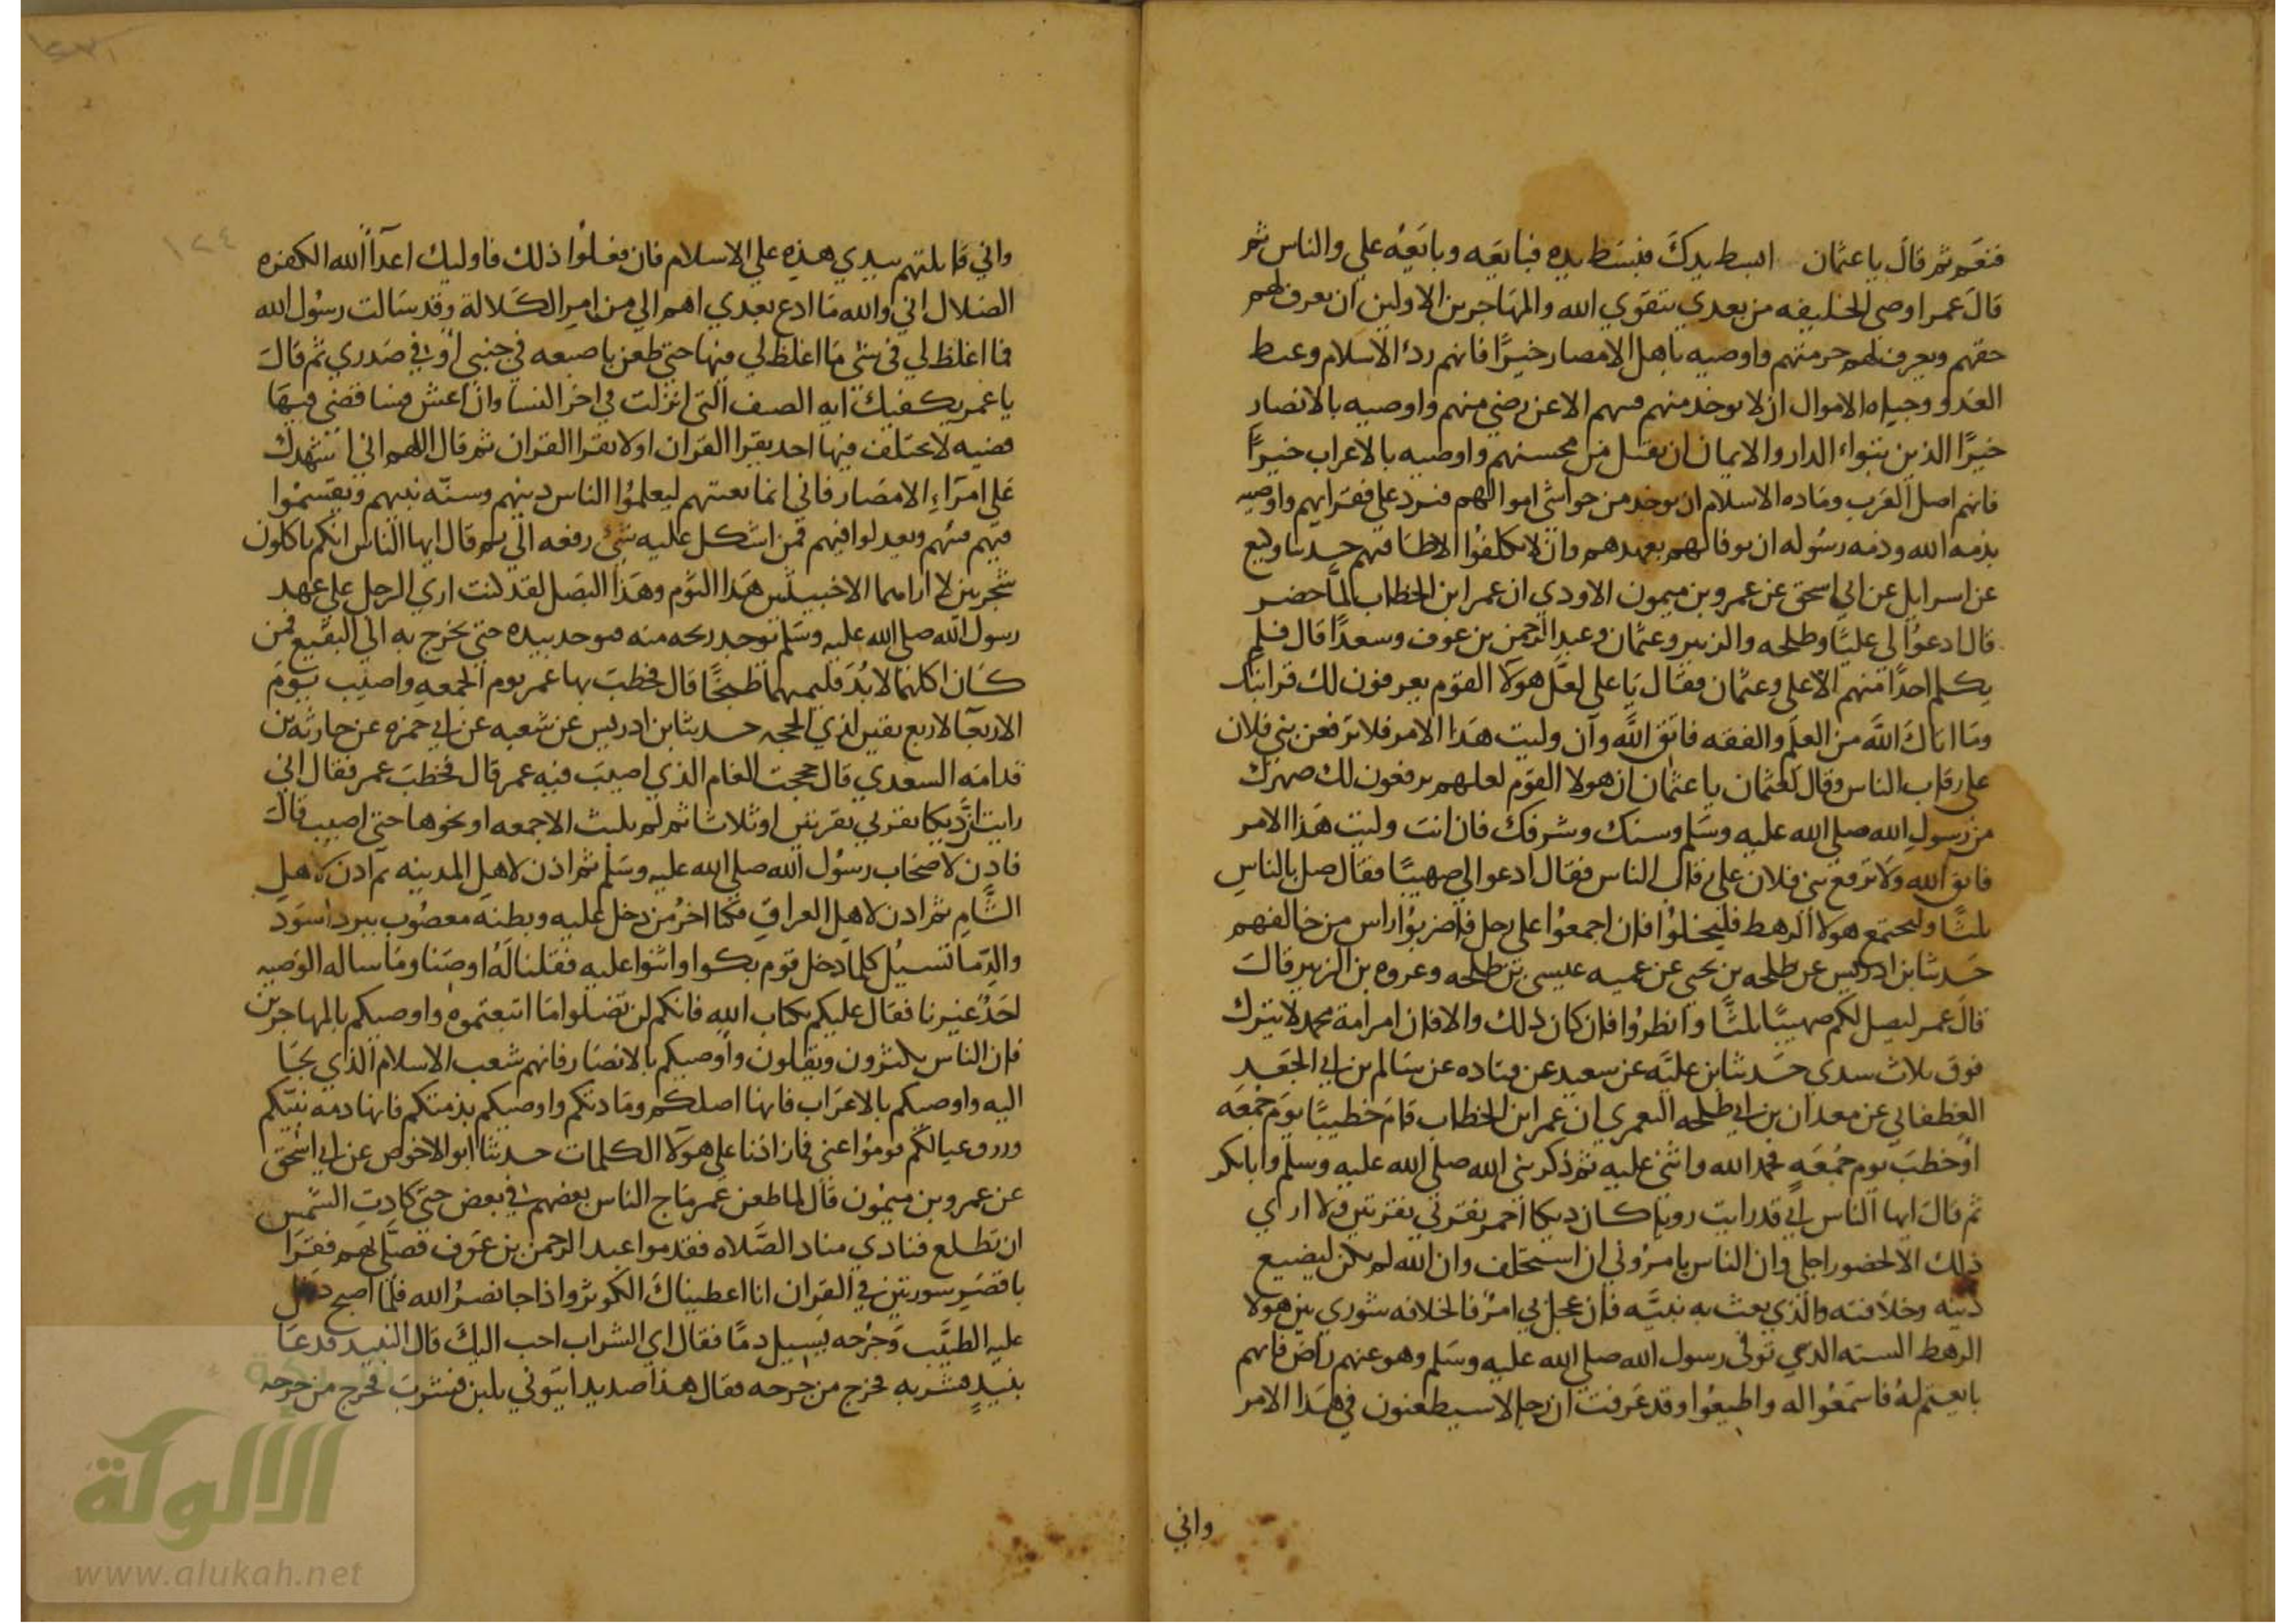 فنعم ثم قال يا عثمان ابسط يدك فبسط يده فبايعه وبايعه علي والناس ثم
قال عمر اوصي الخليفه من بعدي بتقوي الله والمهاجرين الاولين ان يعرف لهم
حقهم ويعرف لهم حرمتهم واوصيه باهل الامصار خيرًا فانهم ردء الاسلام وغيظ
العدو وجباه الاموال ان لا يوخذ منهم فيهم الا عن رضي منهم واوصيه بالانصار
خيرًا الذين تبواء الدار والايمان ان يقبل من محسنهم واوصيه بالاعراب خيرًا
فانهم اصل العرب وماده الاسلام ان يوخذ من حواشي اموالهم فترد على فقرايهم واوصيه
بذمه الله وذمه رسوله ان يوفا لهم بعهدهم وان لا يكلفوا الا طاقتهم حدثنا وكيع
عن اسرايل عن ابي اسحق عن عمرو بن ميمون الاودي ان عمر ابن الخطاب لما حضر
قال ادعوا لي عليًا وطلحه والزبير وعثمان وعبد الرحمن بن عوف وسعدًا قال فلم
يكلم احدًا منهم الا علي وعثمان فقال يا علي لعل هولا القوم يعرفون لك قرابتك
وما اتاك الله من العلم والفقه فاتق الله وان وليت هذا الامر فلا ترفعن بني فلان
على رقاب الناس وقال لعثمان يا عثمان ان هولا القوم لعلهم يرفعون لك صهرك
من رسول الله صلى الله عليه وسلم وسنك وشرفك فان انت وليت هذا الامر
فاتق الله ولا ترفع بني فلان على رقاب الناس فقال ادعوا لي صهيبًا فقال صل بالناس
ثلثًا وليجتمع هولا الرهط فليخلوا فان اجمعوا على رجل فاضربوا راس من خالفهم
حدثنا ابن ادريس عن طلحه بن يحيى عن عميه عيسى بن طلحه وعروه بن الزبير قالا
قال عمر ليصل لكم صهيبًا ثلثًا وانظروا فان كان ذلك والا فان امر امة محمد لا يترك
فوق ثلاث سدى حدثنا ابن عليه عن سعيد عن قتاده عن سالم بن ابي الجعد
الغطفاني عن معدان بن ابي طلحه اليعمري ان عمر ابن الخطاب قام خطيبًا يوم جمعه
او خطب يوم جمعه فحمد الله واثنى عليه ثم ذكر نبي الله صلى الله عليه وسلم وابابكر
ثم قال ايها الناس اني قد رايت رويا كان ديكا احمر نقرني نقرتين ولا اري
ذلك الا لحضور اجلي وان الناس يامروني ان استخلف وان الله لم يكن ليضيع
دينه وخلافته والذي بعث به نبيه فان عجل بي امر فالخلافه شوري بين هولا
الرهط السته الذي توفى رسول الله صلى الله عليه وسلم وهو عنهم راض فايهم
بايعتم له فاسمعوا له واطيعوا وقد عرفت ان رجالا سيطعنون في هذا الامر
واني
واني قاتلتهم بيدي هذه علي الاسلام فان فعلوا ذلك فاوليك اعدآ الله الكفره
الضلال اني والله ما ادع بعدي اهم الي من امر الكلالة وقد سالت رسول الله
فما اغلظ لي في شي ما اغلظ لي فيها حتى طعن باصبعه في جنبي او في صدري ثم قال
يا عمر يكفيك ايه الصيف التي انزلت في اخر النسا وان اعش فسا قضي فيها
قضيه لا يختلف فيها احد يقرا القران او لا يقرا القران ثم قال اللهم اني اشهدك
على امراء الامصار فاني انما بعثتهم ليعلموا الناس دينهم وسنه نبيهم ويقسموا
فيهم فيهم ويعدلوا فيهم فمن اشكل عليه شي رفعه الي ثم قال ايها الناس انكم تاكلون
شجرتين لا اراهما الا خبيثتين هذا الثوم وهذا البصل لقد كنت اري الرجل على عهد
رسول الله صلى الله عليه وسلم يوجد ريحه منه فيوخذ بيده حتى يخرج به الى البقيع فمن
كان اكلهما لا بد فليمتهما طبخًا قال فخطب بها عمر يوم الجمعه واصيب يوم
الاربعا لاربع بقين لذي الحجه حدثنا ابن ادريس عن شعبه عن ابي حمزه عن جاريه بن
قدامه السعدي قال حججت العام الذي اصيب فيه عمر قال فخطب عمر فقال اني
رايت ان ديكا نقرني نقرتين او ثلاثا ثم لم يلبث الا جمعه او نحوها حتى اصيب قال
فاذن لاصحاب رسول الله صلى الله عليه وسلم ثم اذن لاهل المدينه ثم اذن لاهل
الشام ثم اذن لاهل العراق فكنا اخر من دخل عليه وبطنه معصوب ببرد اسود
والدما تسيل كلما دخل قوم بكوا واثنوا عليه فقلنا له اوصنا وما ساله الوصيه
احد غيرنا فقال عليكم بكتاب الله فانكم لن تضلوا ما اتبعتموه واوصيكم بالمهاجرين
فان الناس يكثرون ويقلون واوصيكم بالانصار فانهم شعب الاسلام الذي لجا
اليه واوصيكم بالاعراب فانها اصلكم ومادتكم واوصيكم بذمتكم فانها ذمه نبيكم
ورزق عيالكم قوموا عني فما زادنا على هولا الكلمات حدثنا ابو الاحوص عن ابي اسحق
عن عمرو بن ميمون قال لما طعن عمر ماج الناس بعضهم في بعض حتى كادت الشمس
ان تطلع فنادي مناد الصلاه فقدموا عبد الرحمن بن عوف فصلى بهم فقرا
باقصر سورتين في القران انا اعطيناك الكوثر واذا جا نصر الله فلما اصبح دخل
عليه الطبيب وجرحه يسيل دمًا فقال اي الشراب احب اليك قال النبيذ فدعا
بنبيذ فشربه فخرج من جرحه فقال هذا صديد ايتوني بلبن فشرب فخرج من جرحه
١٢٤
الألوكة
www.alukah.net